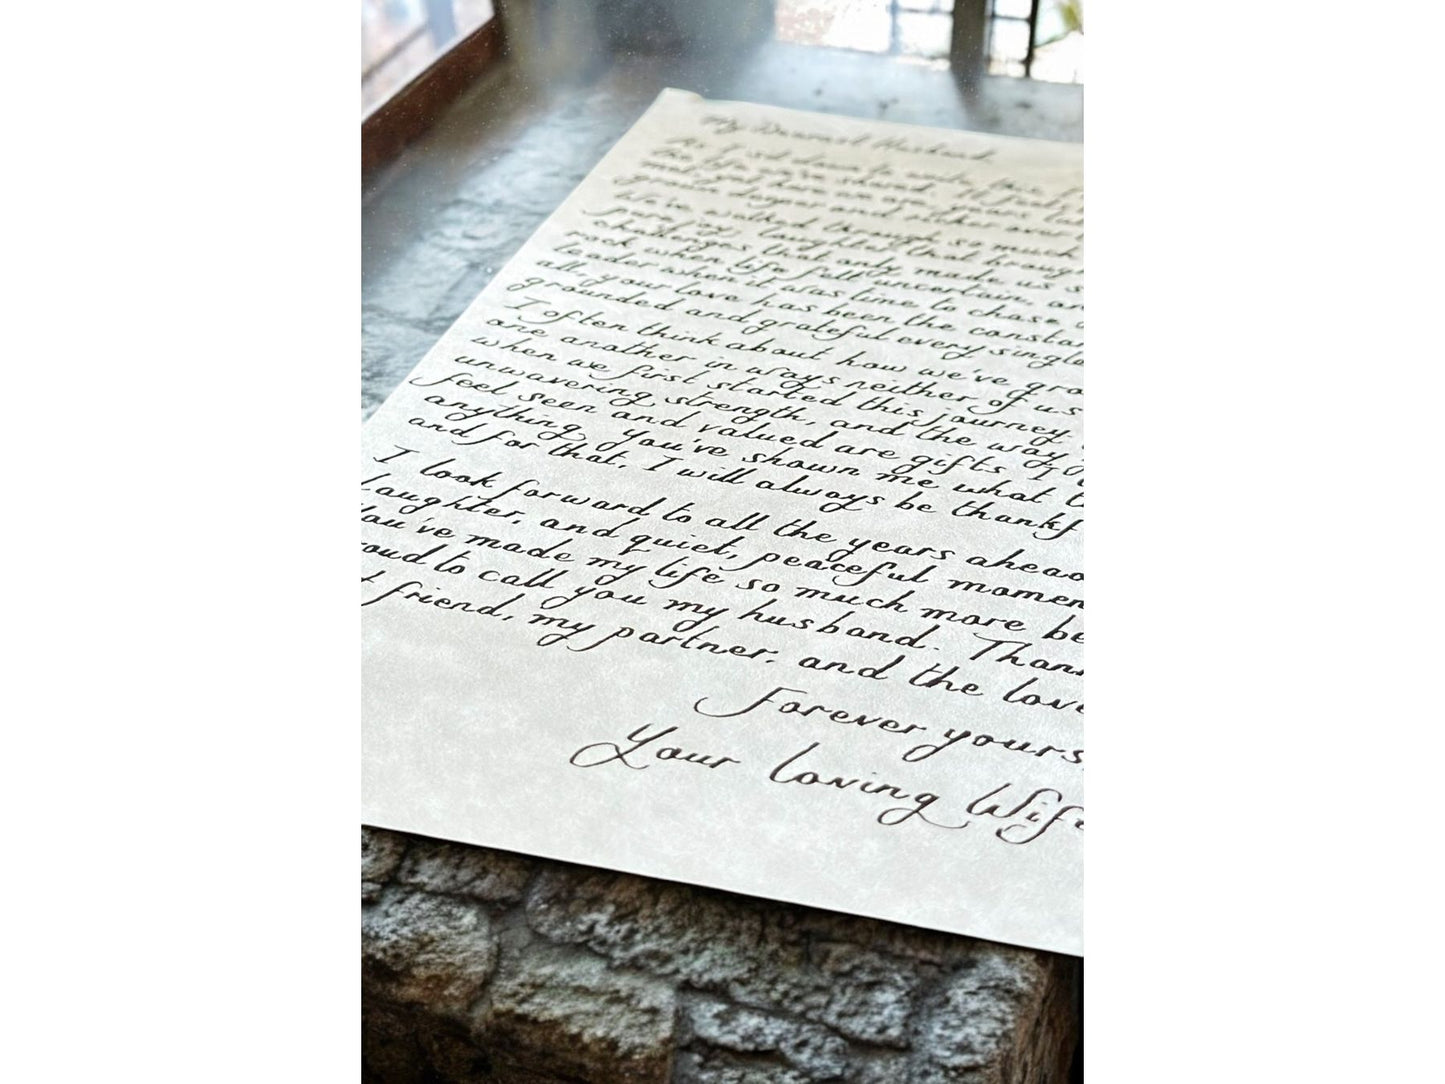 My Dearest Husband
As I sit down to write this
the life we've shared. It feels
met, yet here we are, years
grown deeper and richer over
We've walked through so much
pure joy, laughter that broug
challenges that only made us s
rock when life felt uncertain, a
leader when it was time to chase
all, your love has been the consta
grounded and grateful every single
I often think about how we've gro
one another in ways neither of us
when we first started this journey
unwavering strength, and the way y
feel seen and valued are gifts I
anything, you've shown me what t
and for that, I will always be thankf
I look forward to all the years ahead
laughter, and quiet, peaceful momen
You've made my life so much more be
roud to call you my husband. Than
t friend, my partner, and the love
Forever yours,
Your loving Wife